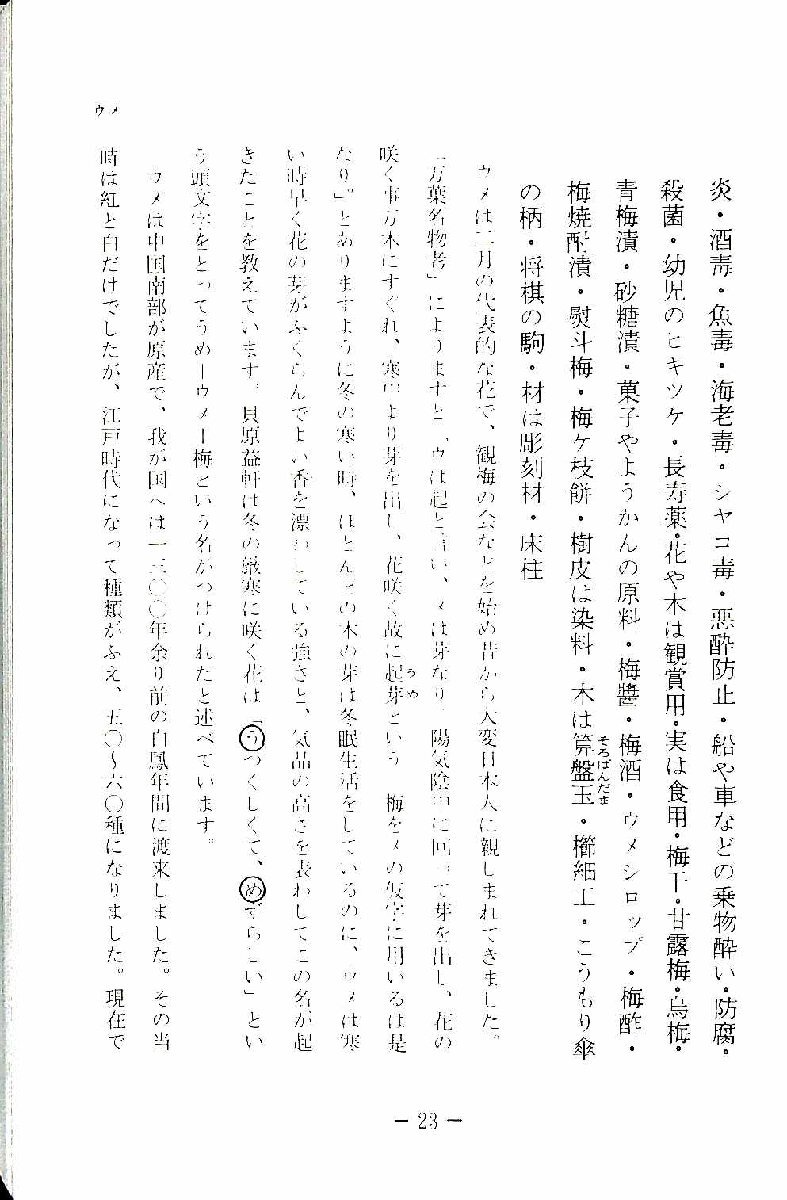 炎・酒毒・魚毒・海老毒・シャコ毒・悪酔防止・船や車などの乗物酔い・防腐・
殺菌・幼児のヒキツケ・長寿薬・花や木は観賞用・実は食用・梅干・甘露梅・烏梅・
青梅漬・砂糖漬・菓子やようかんの原料・梅醬・梅酒・ウメシロップ・梅酢・
梅焼酎漬・熨斗梅・梅ケ枝餅・樹皮は染料・木は算盤玉・櫛細工・こうもり傘
そろばんだま
の柄・将棋の駒・材は彫刻材・床柱
ウメは二月の代表的な花で、観梅の会などを始め昔から大変日本人に親しまれてきました。
「万葉名物考」によりますと、ウは起と言い、メは芽なり、陽気陰中に回って芽を出し、花の
咲く事万木にすぐれ、寒中より芽を出し、花咲く故に起芽という 梅をメの仮字に用いるは是
うめ
なり。」とありますように冬の寒い時、ほとんどの木の芽は冬眠生活をしているのに、ウメは寒
い時早く花の芽がふくらんでよい香を漂わしている強さと、気品の高さを表わしてこの名が起
きたことを教えています。貝原益軒は冬の厳寒に咲く花は「うつくしくて、めずらしい」とい
う頭文字をとってうめーウメー梅という名がつけられたと述べています。
ウメは中国南部が原産で、我が国へは一三〇〇年余り前の白鳳年間に渡来しました。その当
時は紅と白だけでしたが、江戸時代になって種類がふえ、五〇〜六〇種になりました。現在で
ウメ
— 23 —